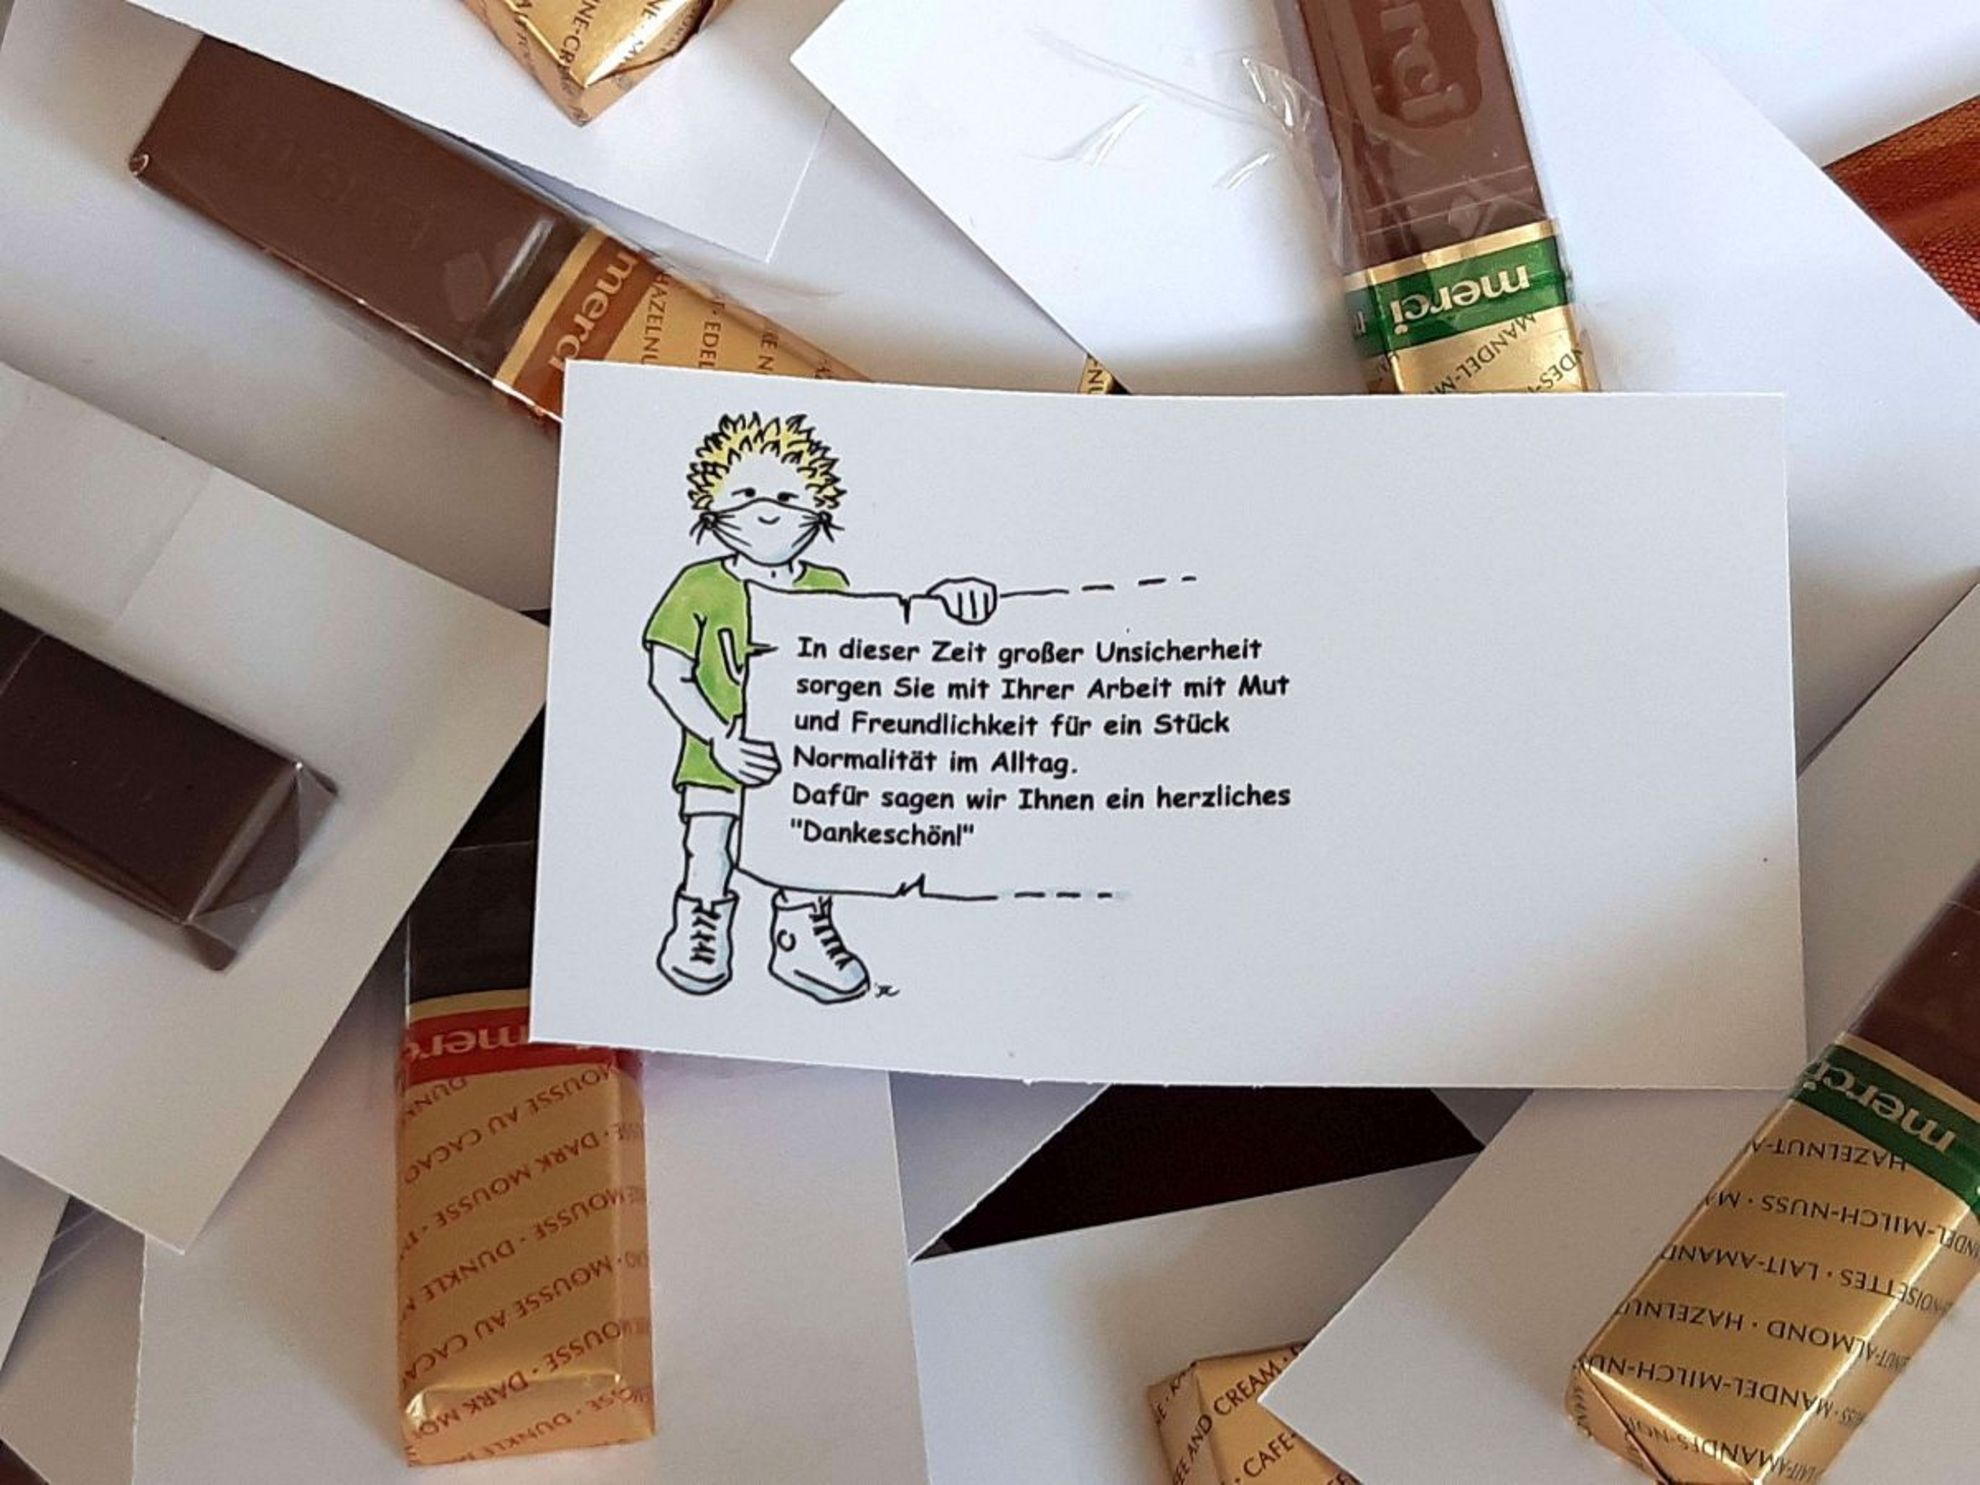 NE-CR
merci
merci
HAZELNU
EDEL
merci
merci
MANDEL-M
In dieser Zeit großer Unsicherheit
sorgen Sie mit Ihrer Arbeit mit Mut
und Freundlichkeit für ein Stück
Normalität im Alltag.
Dafür sagen wir Ihnen ein herzliches
"Dankeschön!"
merci
MOUSSE AU CACAO
MOUSSE · DARK MOUSSE
MOUSSE · DUNKLE
MOUSSE AU CACAO
MOUSSE · DARK MO
SSE · DUNKLE
merci
HAZELNUT-A
NDEL-MILCH-NUSS · MA
NOISETTES · LAIT-AMAND
ALMOND · HAZELNUT
MANDEL-MILCH-NUSS
AND CREAM
CAFE-